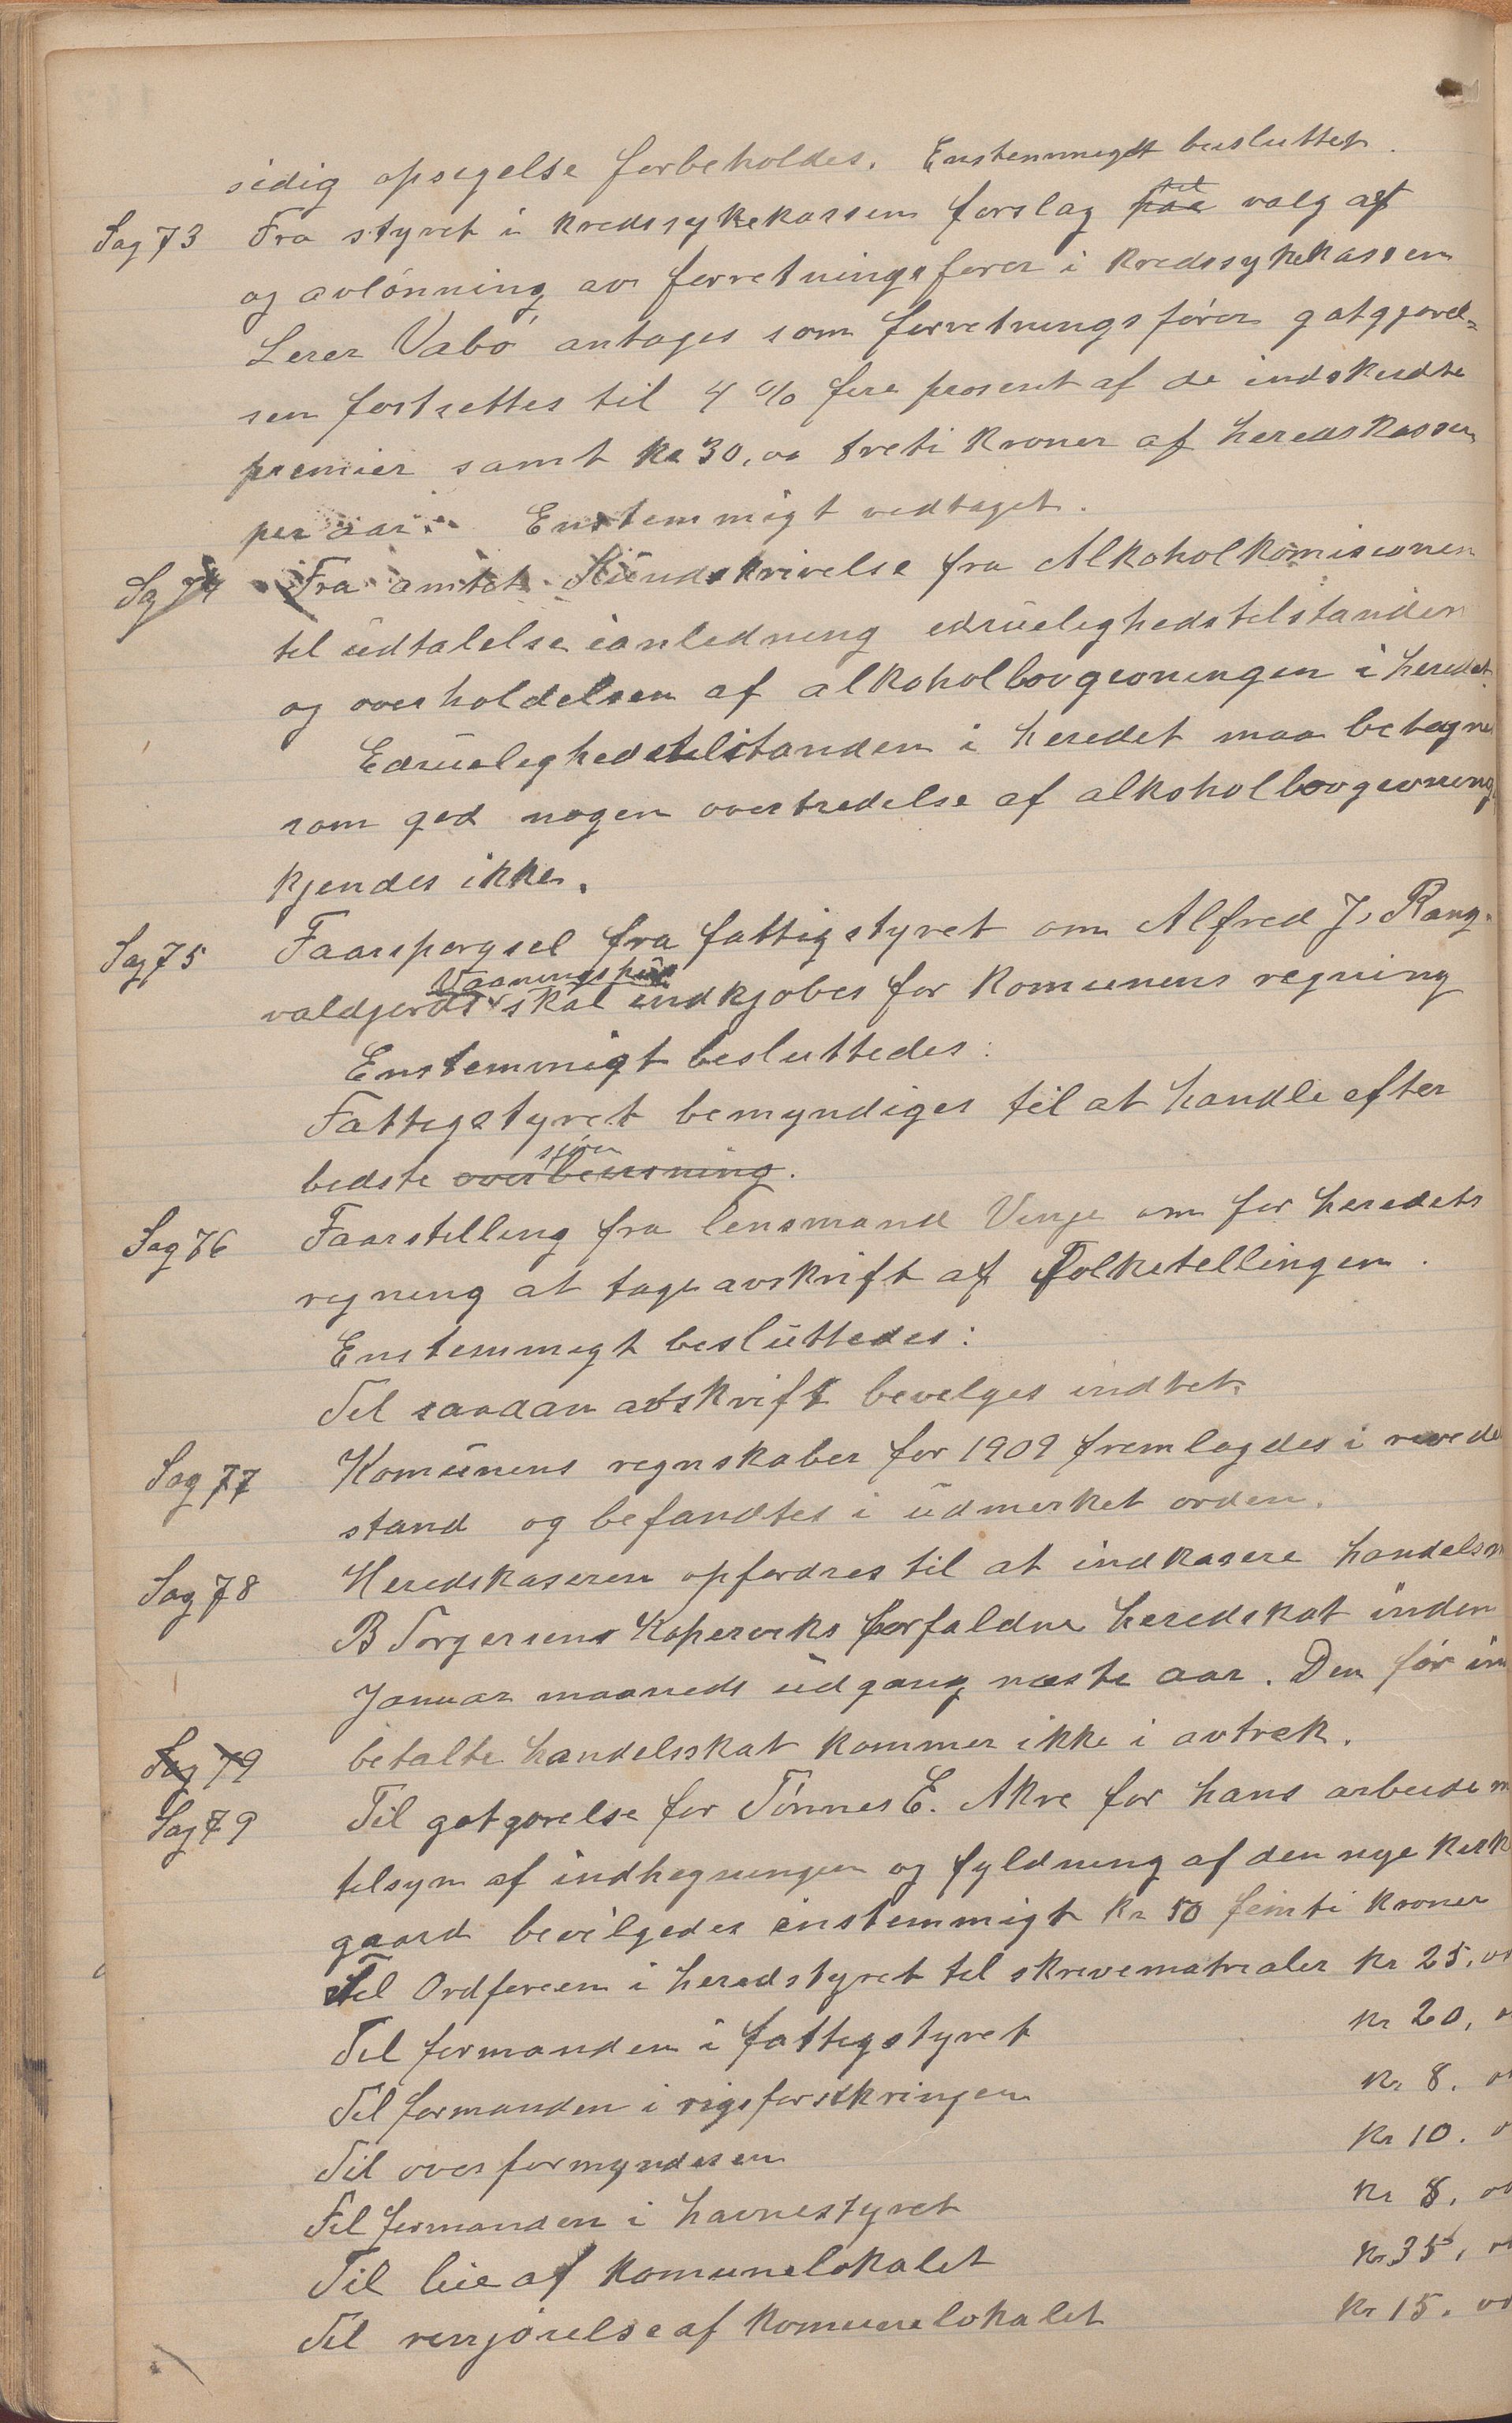 sidig opsigelse forbeholdes. Enstemmigt besluttet.
Sag 73 Fra styret i kredssykekassen forslag til valg af
og avlønning av forretningsfører i kredssykekassen
Lerer Vabø antages som forretningsfører gotgjørel-
sen fortsettes til 4 % fire prosent af de indskudte
premier samt kr 30,00 treti kroner af heredskassen
per aar. Enstemmigt vedtaget.
Sag 74 Fra amtet Rundskrivelse fra Alkoholkomisionen
til udtalelse ianledning edruelighedstilstanden
og overholdelsen af alkohollovgivningen i heredet.
Edruelighedstilstanden i heredet maa betegnes
som god nogen overtredelse af alkohollovgivning
kjendes ikke.
Sag 75 Faarspørgsel fra fattigstyret om Alfred J. Rang-
Vaaningshus
valdjords skal indkjøbes for komunens regning
Enstemmigt besluttedes:
Fattigstyret bemyndiges til at handle efter
skjøn
bedste overbevisning.
Sag 76 Faarstilling fra lensmand Vinje om for heredets
regning at tage avskrift af Folketellingen.
Enstemmigt besluttedes:
Til saadan avskrift bevilges indtet.
Sag 77 Komunens regnskaber for 1909 fremlagdes i revide
stand og befandtes i udmerket orden.
Sag 78 Heredskaseren opfordres til at indkasere handelsm
B Torgersens Kopervks forfaldne heredskat inden
Januar maaneds udgang næste aar. Den før in
Sag 79 betalte handelsskat kommer ikke i avtræk.
Sag 79 Til gotgørelse for Tønnes E. Akre for hans arbeide m
tilsyn af indhegningen og fyldning af den nye kirk
gaard bevilgedes enstemmigt kr 50 femti kroner
Til Ordføreren i heredstyret til skrivematrialer kr 25,00
Til formanden i fattigstyret kr 20,
Til formanden i rigsforsikringen kr 8.
Til overformynderen kr 10.
Til formanden i havnestyret kr 8,
Til leie af komunelokalet kr 35,
Til rengjørelse af komunelokalet kr 15.